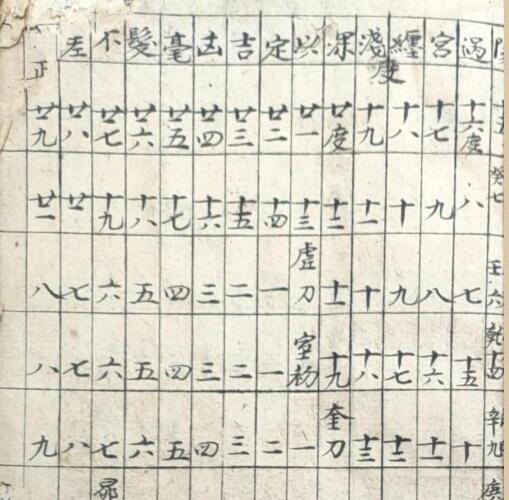 癸七 壬六
過 十六度 八 七 十五 十
宮 十七 九 八 十六 十一
纏 十八 十 九 十七 十二
淺度 十九 十一 十 十八 十三
深 廿度 十二 十一 十九 奎刀
以 廿一 十三 虛刀 室初 一
定 廿二 十四 一 一 二
吉 廿三 十五 二 二 三
凶 廿四 十六 三 三 四
毫 廿五 十七 四 四 五
髮 廿六 十八 五 五 六
不 廿七 十九 六 六 七 昴
差 廿八 廿 七 七 八
正 廿九 廿一 八 八 九